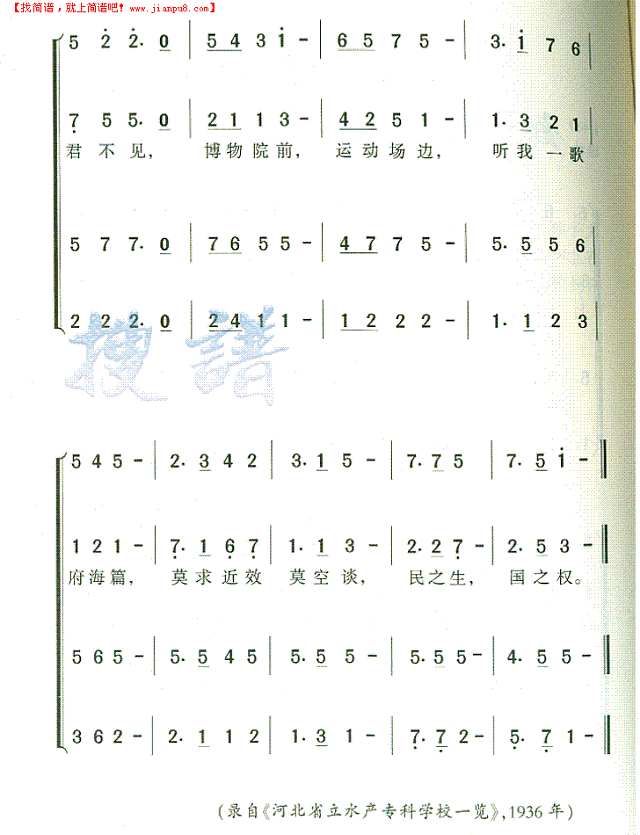 【找简谱，就上简谱吧！www.jianpu8.com】
5 2̇ 2̇. 0 | 5 4 3 i̇ - | 6 5 7 5 - | 3. i̇ 7 6 |
7̣ 5 5. 0 | 2 1 1 3 - | 4 2 5 1 - | 1. 3 2 1 |
君 不 见， 博 物 院 前， 运 动 场 边， 听 我 一 歌
5 7 7. 0 | 7 6 5 5 - | 4 7 7 5 - | 5. 5 5 6 |
2 2 2. 0 | 2 4 1 1 - | 1 2 2 2 - | 1. 1 2 3 |
搜 譜
5 4 5 - | 2. 3 4 2 | 3. 1 5 - | 7. 7 5 | 7. 5 i̇ - ‖
1 2 1 - | 7̣. 1 6̣ 7̣ | 1. 1 3 - | 2. 2 7̣ - | 2. 5 3 - ‖
府 海 篇， 莫 求 近 效 莫 空 谈， 民 之 生， 国 之 权。
5 6 5 - | 5. 5 4 5 | 5. 5 5 - | 5. 5 5 - | 4. 5 5 - ‖
3 6 2 - | 2. 1 1 2 | 1. 3 1 - | 7̣. 7̣ 2 - | 5̣. 7̣ 1 - ‖
(录自《河北省立水产专科学校一览》,1936 年)